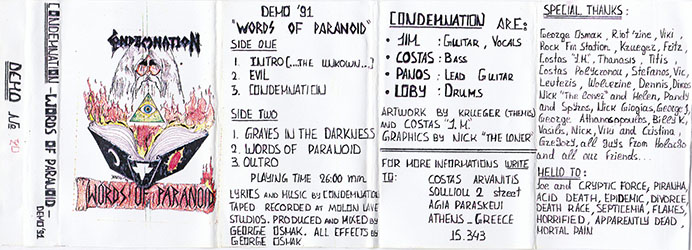 DEMO No 20
CONDEMNATION - WORDS OF PARANOID -
DEMO '91
CONDEMNATION
WORDS OF PARANOID
DEMO '91
"WORDS OF PARANOID"
SIDE ONE
1. INTRO (...THE UNKOWN...)
2. EVIL
3. CONDEMNATION
SIDE TWO
1. GRAVES IN THE DARKNESS
2. WORDS OF PARANOID
3. OUTRO
PLAYING TIME 26:00 min.
LYRICS AND MUSIC by CONDEMNATION
TAPED RECORDED AT MOLON LAVE
STUDIOS. PRODUCED AND MIXED by
GEORGE OSMAK. ALL EFFECTS by
GEORGE OSMAK
CONDEMNATION ARE:
• JIM : GUITAR, VOCALS
• COSTAS: BASS
• PANOS: LEAD GUITAR
• LOBY: DRUMS
ARTWORK BY KRUEGER (THEMIS)
AND COSTAS "J.M."
GRAPHICS BY NICK "THE LOVER"
FOR MORE INFORMATIONS WRITE
TO:
COSTAS ARVANITIS
SOULIOU 2 street
AGIA PARASKEUI
ATHENS_GREECE
15.343
SPECIAL THANKS:
George Osmak, Riot 'zine, Viki,
Rock FM Station, Krueger, Fritz,
Costas "J.M." Thanasis, Titis,
Costas Polycronou, Stefanos, Vic,
Leuteris, Wolverine, Dennis, Dinos
Nick "The Lover" and Helen, Pandy
and Spyros, Nick Giogias, George J,
George Athanasopoulos, Billy K,
Vasilis, Nick, Viki and Cristina,
Gregory, all guys From Holargo
and all our Friends...
HELLO TO:
Joe and CRYPTIC FORCE, PIRANHA,
ACID DEATH, EPIDEMIC, DIVORCE,
DEATH RACE, SEPTICEMIA, FLAMES,
HORRIFIED, APPARENTLY DEAD,
MORTAL PAIN